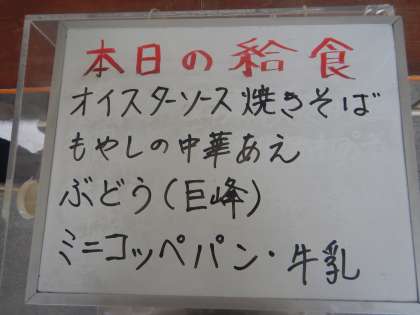 本日の給食
オイスターソース焼きそば
もやしの中華あえ
ぶどう(巨峰)
ミニコッペパン・牛乳